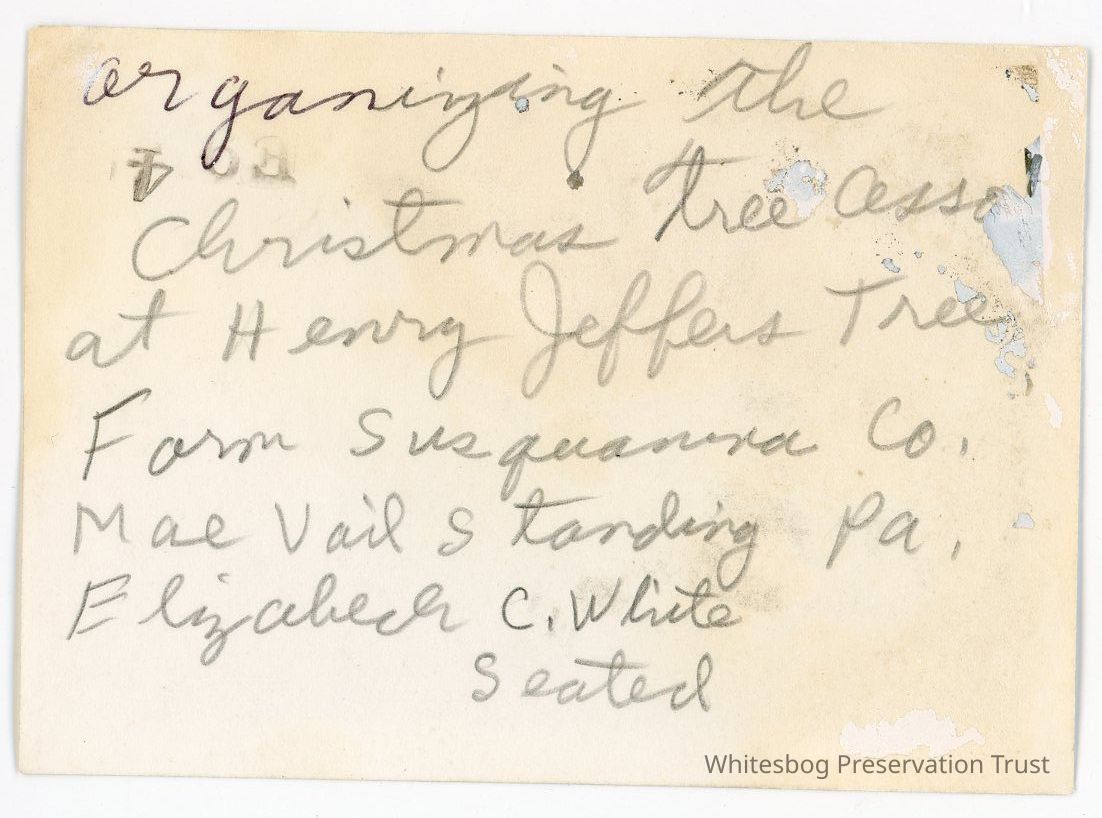 organizing the
Christmas tree asso
at Henry Jeffers Tree
Farm Susquanna Co.
Mae Vail Standing Pa.
Elizabeth C. White
Seated
Whitesbog Preservation Trust